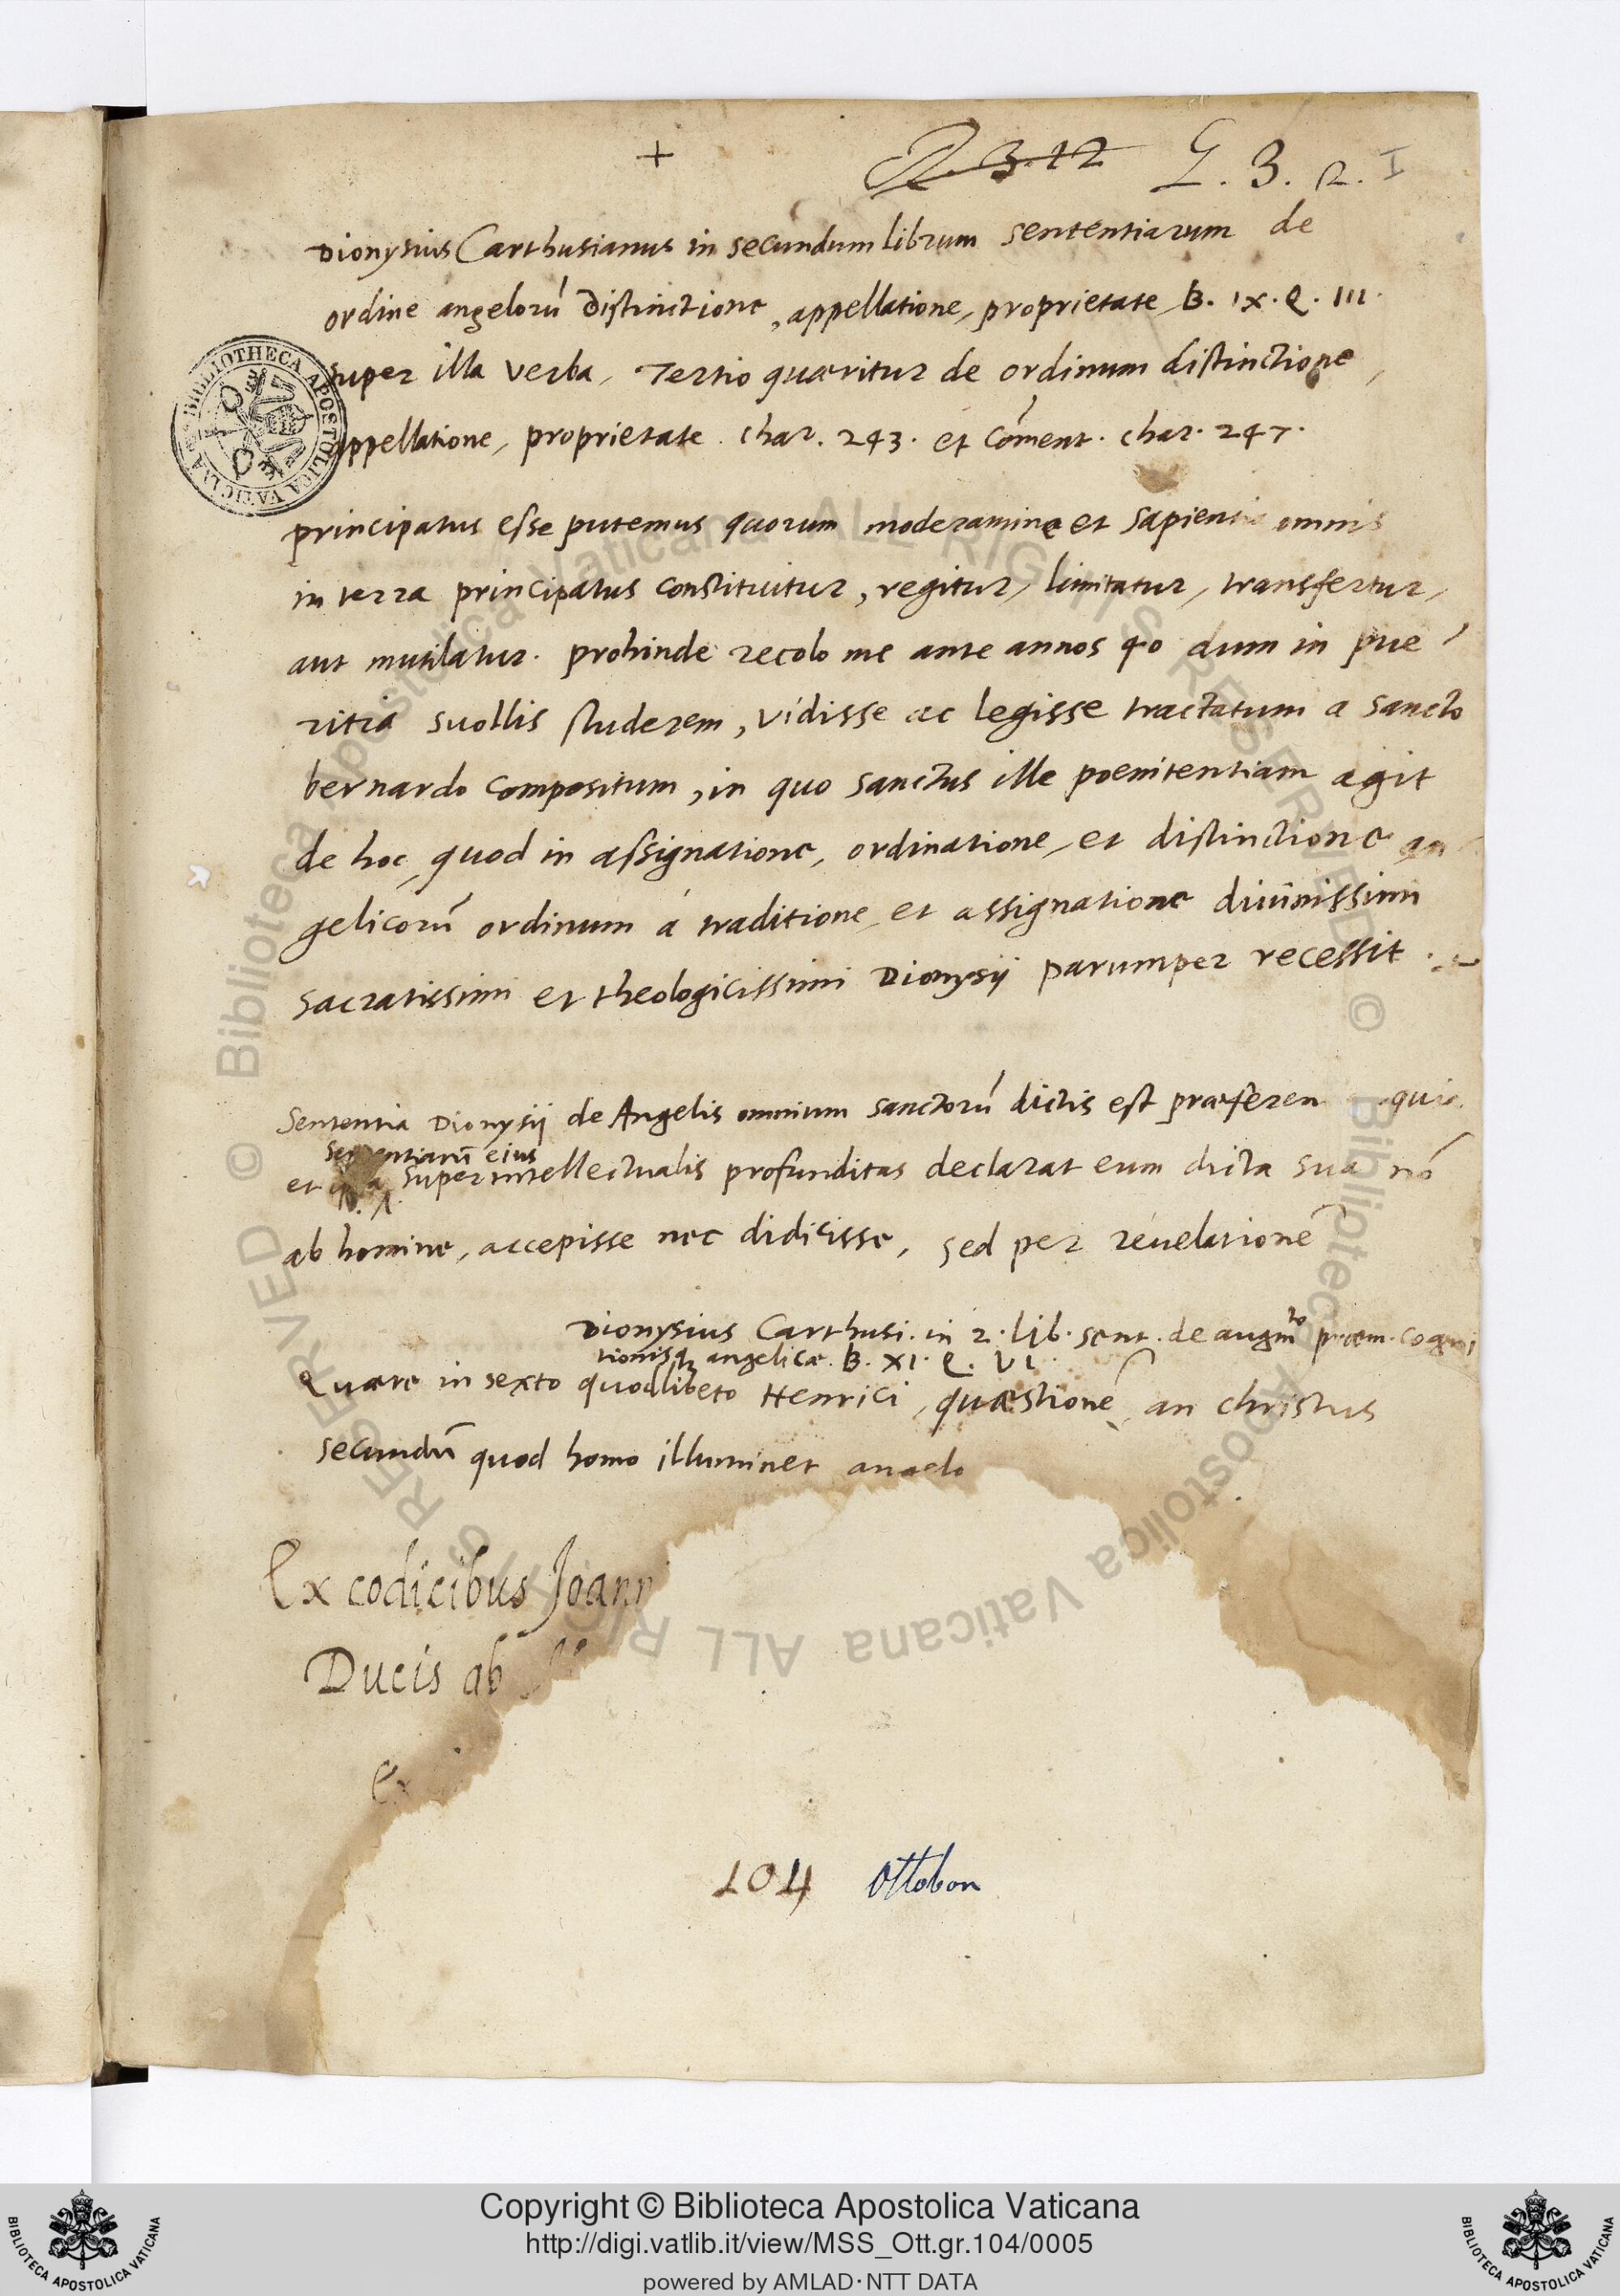 +
R. 3. 12 G. 3. 2. I
Dionysius Carthusianus in secundum librum sententiarum de
ordine angelorū distinctione, appellatione, proprietate B. IX. Q. III.
super illa verba, Tertio quæritur de ordinum distinctione,
appellatione, proprietate. char. 243. et Cōment. char. 247.
BIBLIOTHECA APOSTOLICA VATICANA
principatus esse putemus quorum moderamine et sapientia omnis
in terra principatus constituitur, regitur, limitatur, transfertur,
aut mutilatur. prohinde recolo me ante annos 40 dum in pue
ritia suollis studerem, vidisse ac legisse tractatum a sancto
bernardo compositum, in quo sanctus ille poenitentiam agit
de hoc, quod in assignatione, ordinatione, et distinctione an
gelicorū ordinum á traditione et assignatione diuinissimi
sacratissimi et theologicissimi Dionysij parumper recessit.
Sententia Dionysij de Angelis omnium sanctorū dictis est præferen quia
sententiarū eius
et superintellectualis profunditas declarat eum dicta sua nō
ab homine, accepisse nec didicisse, sed per reuelationē
Dionysius Carthusi. in 2. lib. sent. de augmto præm. cogni
tionisq; angelicæ. B. XI. Q. VI.
Quære in sexto quodlibeto Henrici, quæstionē, an christus
secundū quod homo illuminet angelo
Ex codicibus Joann
Ducis ab
Ex
104 Ottobon
© Biblioteca Apostolica Vaticana ALL RIGHTS RESERVED © Biblioteca Apostolica Vaticana ALL RIGHTS RESERVED
Copyright © Biblioteca Apostolica Vaticana
http://digi.vatlib.it/view/MSS_Ott.gr.104/0005
powered by AMLAD·NTT DATA
BIBLIOTECA APOSTOLICA VATICANA
BIBLIOTECA APOSTOLICA VATICANA